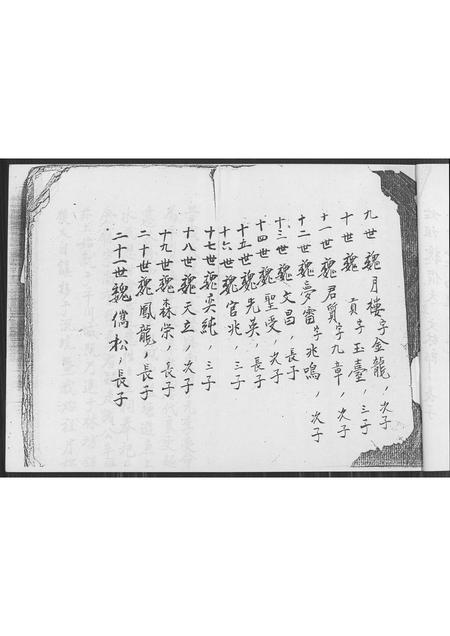 九世魏月樓字金龍，次子
十世魏 貢字玉臺，三子
十一世魏君質字九章，次子
十二世魏夢雷字兆鳴，次子
十三世魏文昌，長子
十四世魏聖受，次子
十五世魏先英，長子
十六世魏官兆，三子
十七世魏奕純 三子
十八世魏天立，次子
十九世魏森榮，長子
二十世魏鳳龍，長子
二十一世魏儁松，長子